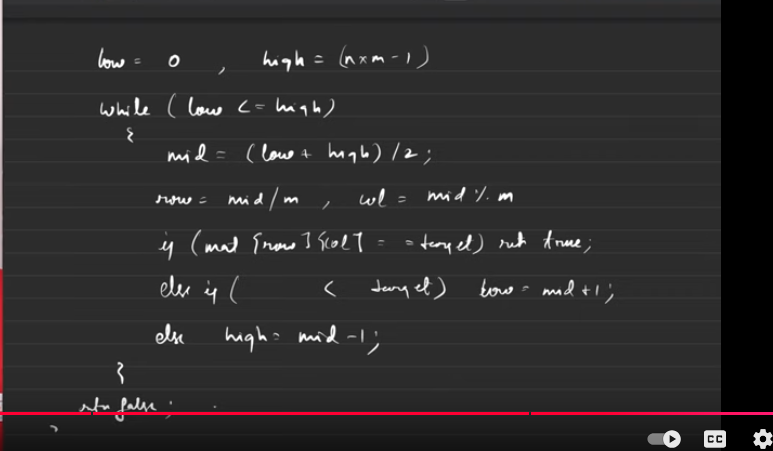 low = 0 , high = (n x m - 1)
while ( low <= high)
{
mid = (low + high) / 2 ;
row = mid / m , col = mid % m
if (mat [row] [col] == target) ret true;
else if ( < target) low = mid + 1;
else high = mid - 1;
}
retn false ;
CC